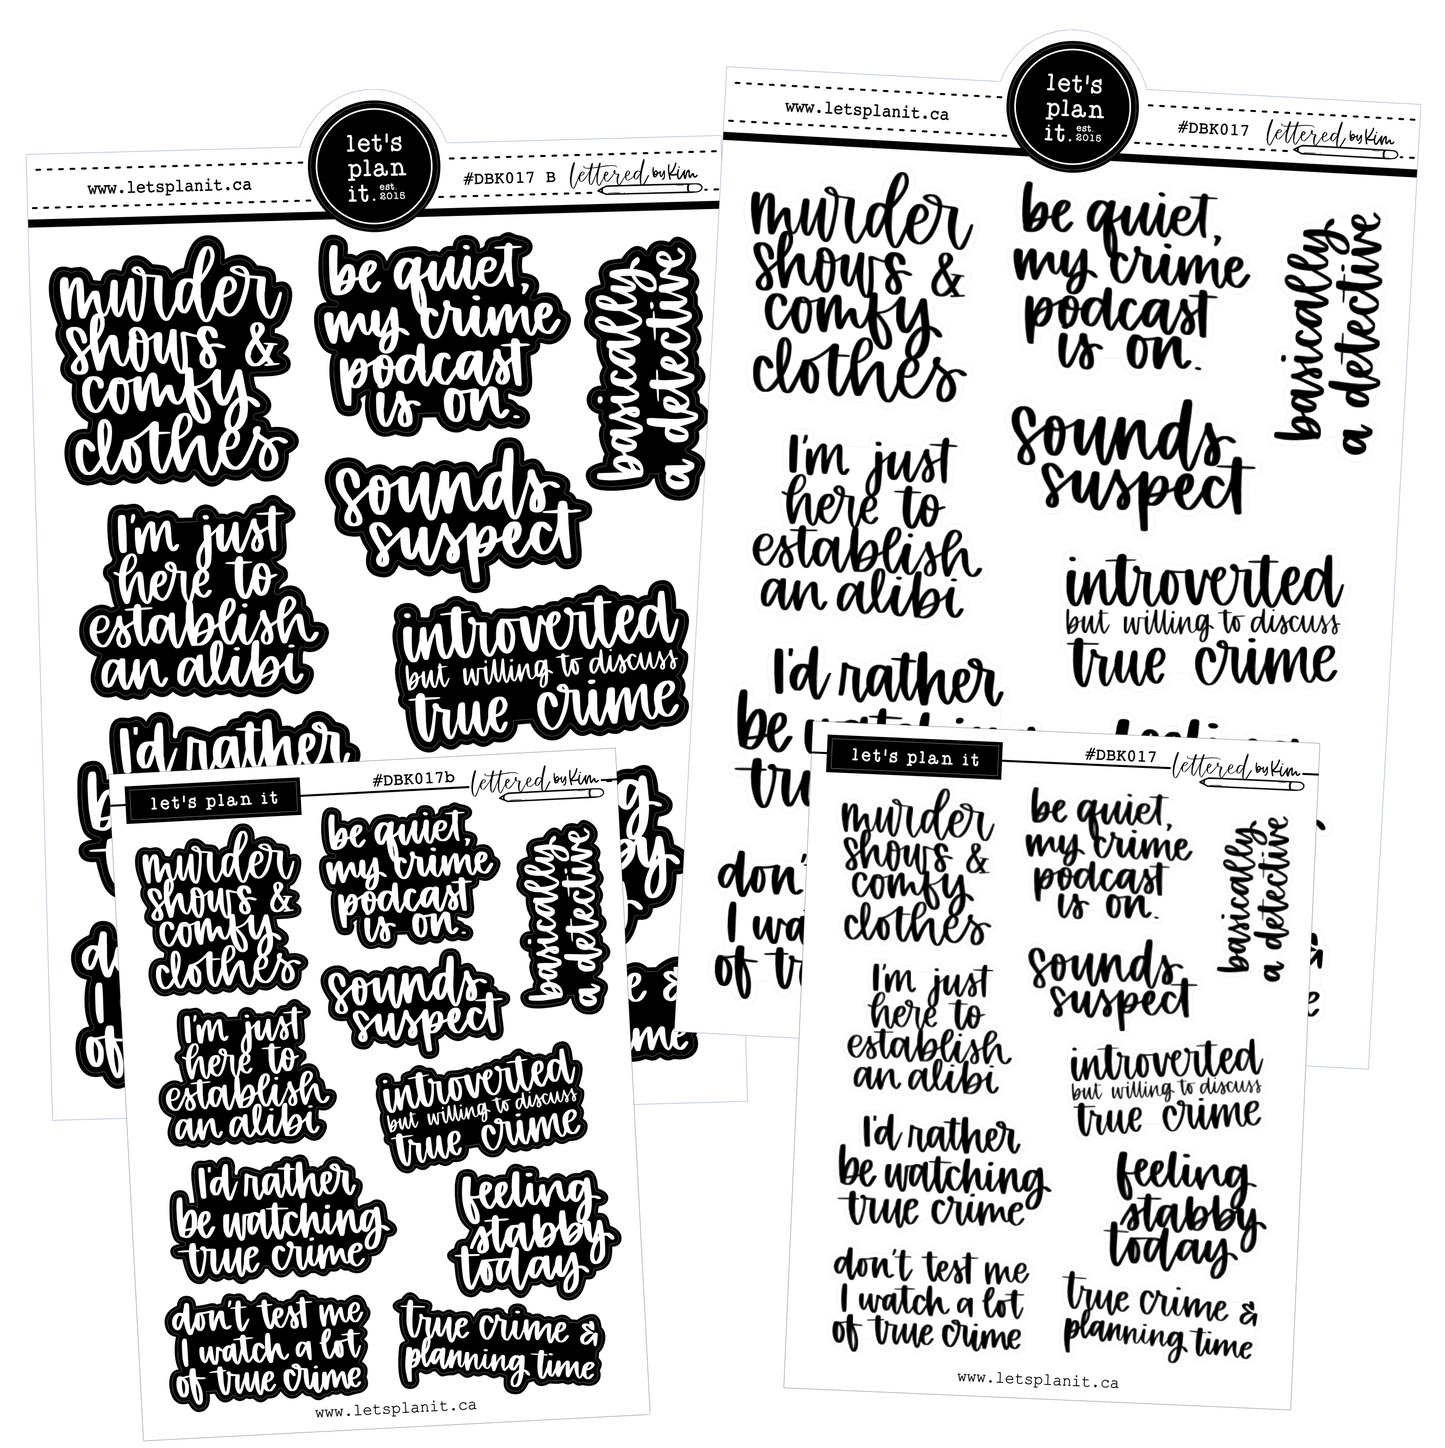 www.letsplanit.ca
let's
plan
it. est. 2015
#DBK017 B
lettered by Kim
murder
shows &
comfy
clothes
be quiet,
my crime
podcast
is on.
basically
a detective
I'm just
here to
establish
an alibi
sounds
suspect
introverted
but willing to discuss
true crime
I'd rather
www.letsplanit.ca
let's
plan
it. est. 2015
#DBK017
lettered by Kim
murder
shows &
comfy
clothes
be quiet,
my crime
podcast
is on.
basically
a detective
I'm just
here to
establish
an alibi
sounds
suspect
introverted
but willing to discuss
true crime
I'd rather
be watching
feeling
don't
I wa
of tr
let's plan it
#DBK017b
lettered by Kim
murder
shows &
comfy
clothes
be quiet,
my crime
podcast
is on.
basically
a detective
I'm just
here to
establish
an alibi
sounds
suspect
introverted
but willing to discuss
true crime
I'd rather
be watching
true crime
feeling
stabby
today
don't test me
I watch a lot
of true crime
true crime &
planning time
www.letsplanit.ca
let's plan it
#DBK017
lettered by Kim
murder
shows &
comfy
clothes
be quiet,
my crime
podcast
is on.
basically
a detective
I'm just
here to
establish
an alibi
sounds
suspect
introverted
but willing to discuss
true crime
I'd rather
be watching
true crime
feeling
stabby
today
don't test me
I watch a lot
of true crime
true crime &
planning time
www.letsplanit.ca